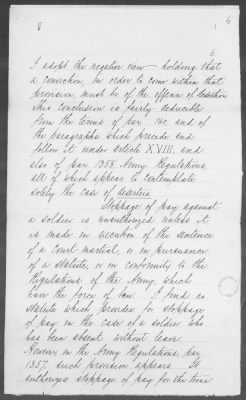 8
6
6
I adopt the negative view – holding that
a conviction, in order to come within that
provision must be of the offence of desertion
This conclusion is fairly deducible
from the terms of par 160. and of
the paragraphs which precede and
follow it under article XVIII, and
also of par 1358 Army Regulations,
all of which appear to contemplate
solely the case of deserters
Stoppage of pay against
a soldier is unauthorized unless it
is made in execution of the sentence
of a court martial, or in pursuance
of a statute, or in conformity to the
Regulations of the Army, which
have the force of law. I find no
statute which provides for stoppage
of pay in the case of a soldier who
has been absent without leave
However in the Army Regulations par
1357. such provision appears It
authorizes stoppage of pay for the time